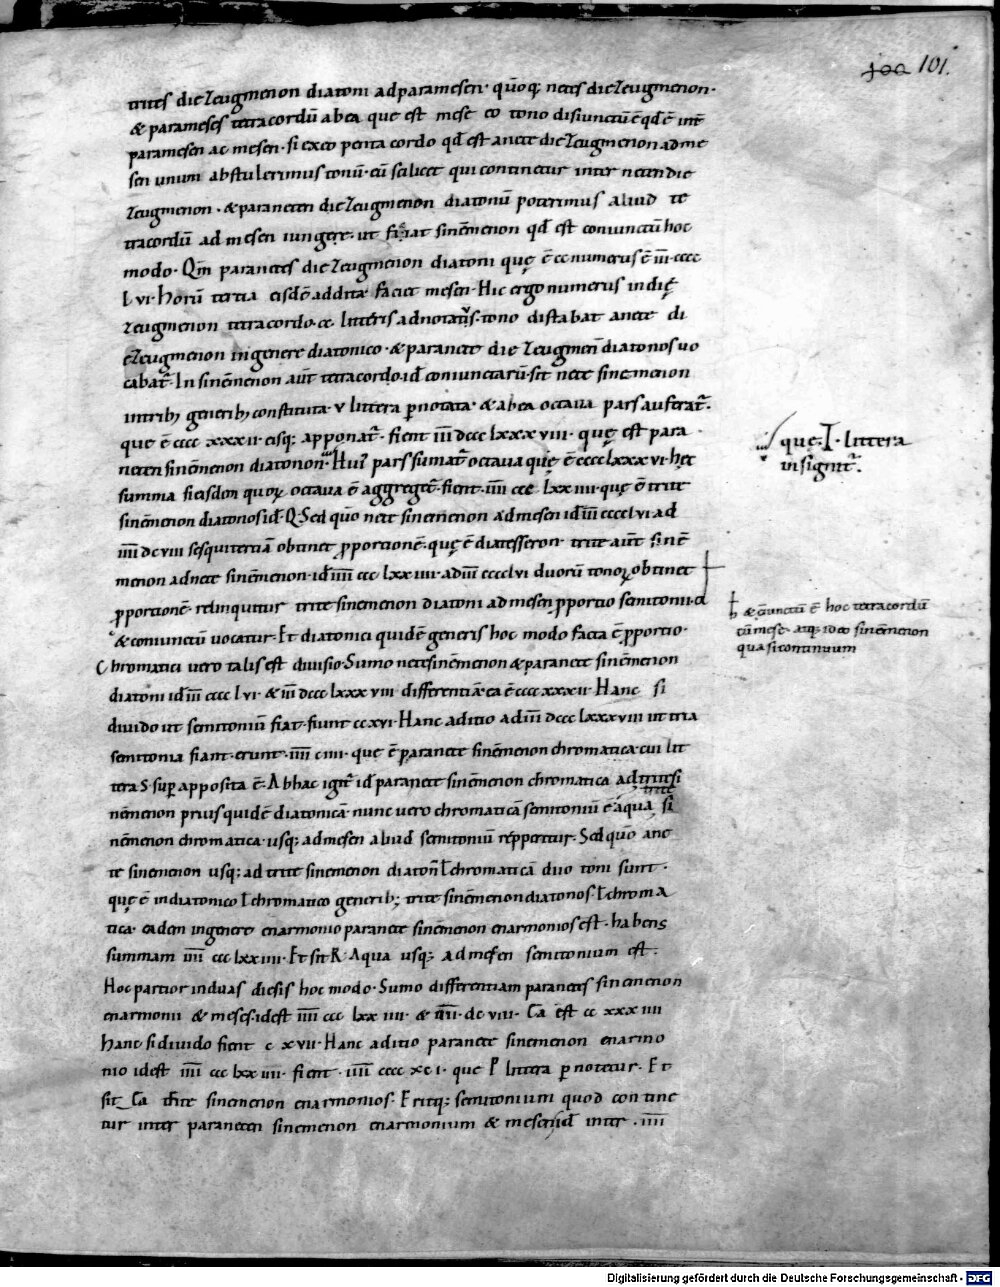 101.
trites diezeugmenon diatoni ad paramesen· quoq; netes diezeugmenon·
& parameses tetracordū ab ea que est mese eo tono disiunctū ē qđ ē int̄
paramesen ac mesen· si ex eo penta cordo qđ est a nete diezeugmenon ad me
sen unum abstulerimus tonū· eū scilicet qui continetur inter neten die
zeugmenon· & paraneten diezeugmenon diatonū poterimus aliud te
tracordū ad mesen iungere· ut fiat sinēmenon qđ est coniunctū hoc
modo· Qm̄ paranetes diezeugmenon diatoni quę ē cc numerus ē iii· cccc
l vi· horū tertia eisdē addita faciet mesen· Hic ergo numerus in die
zeugmenon tetracordo· ee· litteris adnotatis· tono distabat a nete di
ezeugmenon in genere diatonico· & paranete die zeugmen̄ diatonos uo
cabat̄· In sinēmenon aut̄ tetracordo· id̄ coniunctarū· sit nete sinemenon
in trib; generib; constituta· v littera p̄notata· & ab ea octaua pars auferat̄·
que ē cccc xxx ii· eisq; apponat̄· fient iii dccc lxxx viii· quę est para
neten sinēmenon diatonon· Hui' pars sumat̄ octaua quę ē cccc lxxx vi· hęc
summa si eisdem quorū octaua ē aggreget̄· fient· iiii ccc lxx iiii· quę ē trite
sinēmenon diatonos id̄· Q· Sed quō nete sinemenon ad mesen id̄ iii cccc lvi ad
iiii dc viii sesquitertiā obtinet p̄portionē· quę ē diatesseron· trite aut̄ sinē
menon ad nete sinēmenon· id̄ iiii ccc lxx iiii· ad iii cccc lvi duorū tonorū obtinet
p̄portionē· relinquitur trite sinemenon diatoni ad mesen p̄portio semitonii· d
& coniunctū uocatur· Et diatonici quidē generis hoc modo facta ē p̄portio·
Chromatici uero talis est diuisio· Sumo nete sinēmenon & paranete sinēmenon
diatoni id̄ iii cccc lvi· & iii dccc lxxx viii· differentiā ea ē cccc xxx ii· Hanc si
diuido ut semitoniū fiat· fiunt cc xvi· Hanc aditio ad iii dccc lxxx viii ut tria
semitonia fiant· erunt· iiii c iiii· quę ē paranete sinēmenon chromatica· cui lit
tera S· sup̄ apposita ē· Ab hac igit̄ id̄ paranete sinēmenon chromatica ad trite si
nēmenon prius quidē diatonicā nunc uero chromaticā semitoniū ē a qua trite si
nēmenon chromatica· usq; ad mesen aliud semitoniū repperitur· Sed quo a ne
te sinemenon usq; ad trite sinemenon diaton̄ ł chromaticā duo toni sunt·
quę ē in diatonico ł chromatico generib; trite sinēmenon diatonos· ł chroma
tica· eadem in genere enarmonio paranete sinēmenon enarmonios est· habens
summam iiii ccc lxx iiii· Et sit R· A qua usq; ad mesen semitonium est·
Hoc partior in duas diesis hoc modo· Sumo differentiam paranetes sinemenon
enarmonii & meses· idest iiii ccc lxx iiii· & iiii· dc viii· Ea est cc xxx iiii
hanc si diuido fient c xvii· Hanc aditio paranete sinemenon enarmo
nio idest iiii ccc lxx iiii· fient· iiii cccc xc i· que P littera p̄ notetur· Et
sit Ea trite sinemenon enarmonios· Eritq; semitonium quod contine
tur inter paraneten sinemenon enarmonium & mesen id̄ inter· iiii
quę· I· littera
insignit̄·
& c̄iunctū ē hoc tetracordū
cū mese· atq; ideo sinēmenon
quasi continuum
Digitalisierung gefördert durch die Deutsche Forschungsgemeinschaft - DFG